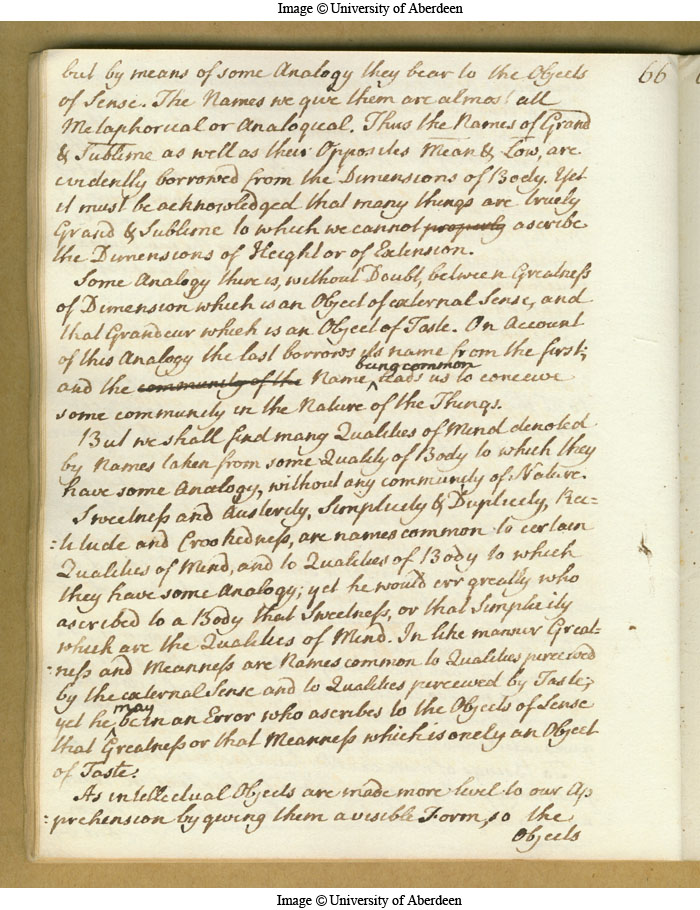 Image © University of Aberdeen
66
but by means of some Analogy they bear to the Objects
of Sense. The Names we give them are almost all
Metaphorical or Analogical. Thus the Names of Grand
& Sublime as well as their Opposites Mean & Low, are
evidently borrowed from the Dimensions of Body. Yet
it must be acknowledged that many things are truely
Grand & Sublime to which we cannot properly ascribe
the Dimensions of Height or of Extension.
Some Analogy there is, without Doubt, between Greatness
of Dimension which is an Object of external Sense, and
that Grandeur which is an Object of Taste. On Account
of this Analogy the last borrows its name from the first;
being common
and the community of the Name ^ leads us to conceive
some community in the Nature of the Things.
But we shall find many Qualities of Mind denoted
by Names taken from some Quality of Body to which they
have some Analogy, without any community of Nature.
Sweetness and Austerity, Simplicity & Duplicity, Rec=
:titude and Crookedness, are names common to certain
Qualities of Mind, and to Qualities of Body to which
they have some Analogy; yet he would err greatly who
ascribed to a Body that Sweetness, or that Simplicity
which are the Qualities of Mind. In like manner Great=
:ness and Meanness are Names common to Qualities perceived
by the external Sense and to Qualities perceived by Taste;
may
yet he ^ be in an Error who ascribes to the Objects of Sense
that Greatness or that Meanness which is onely an Object
of Taste.
As intellectual Objects are made more level to our Ap
:prehension by giving them a visible Form, so the
Objects
Image © University of Aberdeen